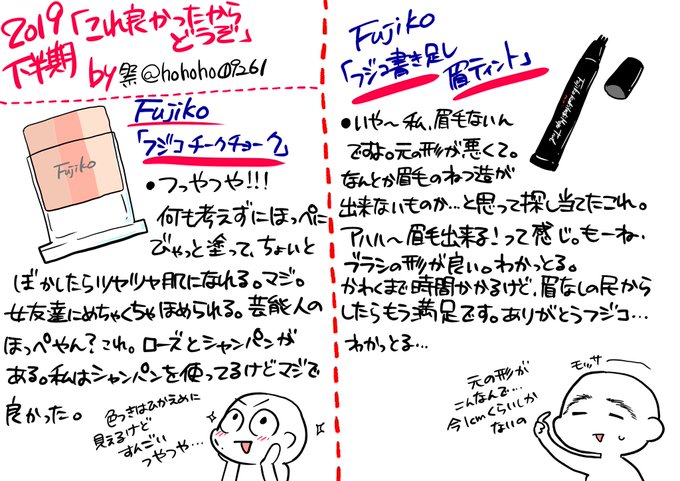 2019「これ良かったから
どうぞ」
下半期
by 祭@hohoho09261
Fujiko
「フジコチークチョーク」
Fujiko
●つっやつや!!!
何も考えずにほっぺに
びゃっと塗って、ちょいと
ぼかしたらツヤツヤ肌になれる。マジ。
女友達にめちゃくちゃほめられる。芸能人の
ほっぺやん?これ。ローズとシャンパンが
ある。私はシャンパンを使ってるけどマジで
良かった。
色つきはひかえめに
見えるけど
すんごい
つやつや…
Fujiko
「フジコ書き足し
眉ティント」
●いや〜私、眉毛ないん
ですよ。元の形が悪くて。
なんとか眉毛のねつ造が
出来ないものか…と思って探し当てたこれ。
アハハ〜眉毛出来る!って感じ。もーね、
ブラシの形が良い。わかっとる。
かわくまで時間かかるけど、眉なしの民から
したらもう満足です。ありがとうフジコ…
わかっとる…
元の形が
こんなんで…
今1cmくらいしか
ないの
モッサ